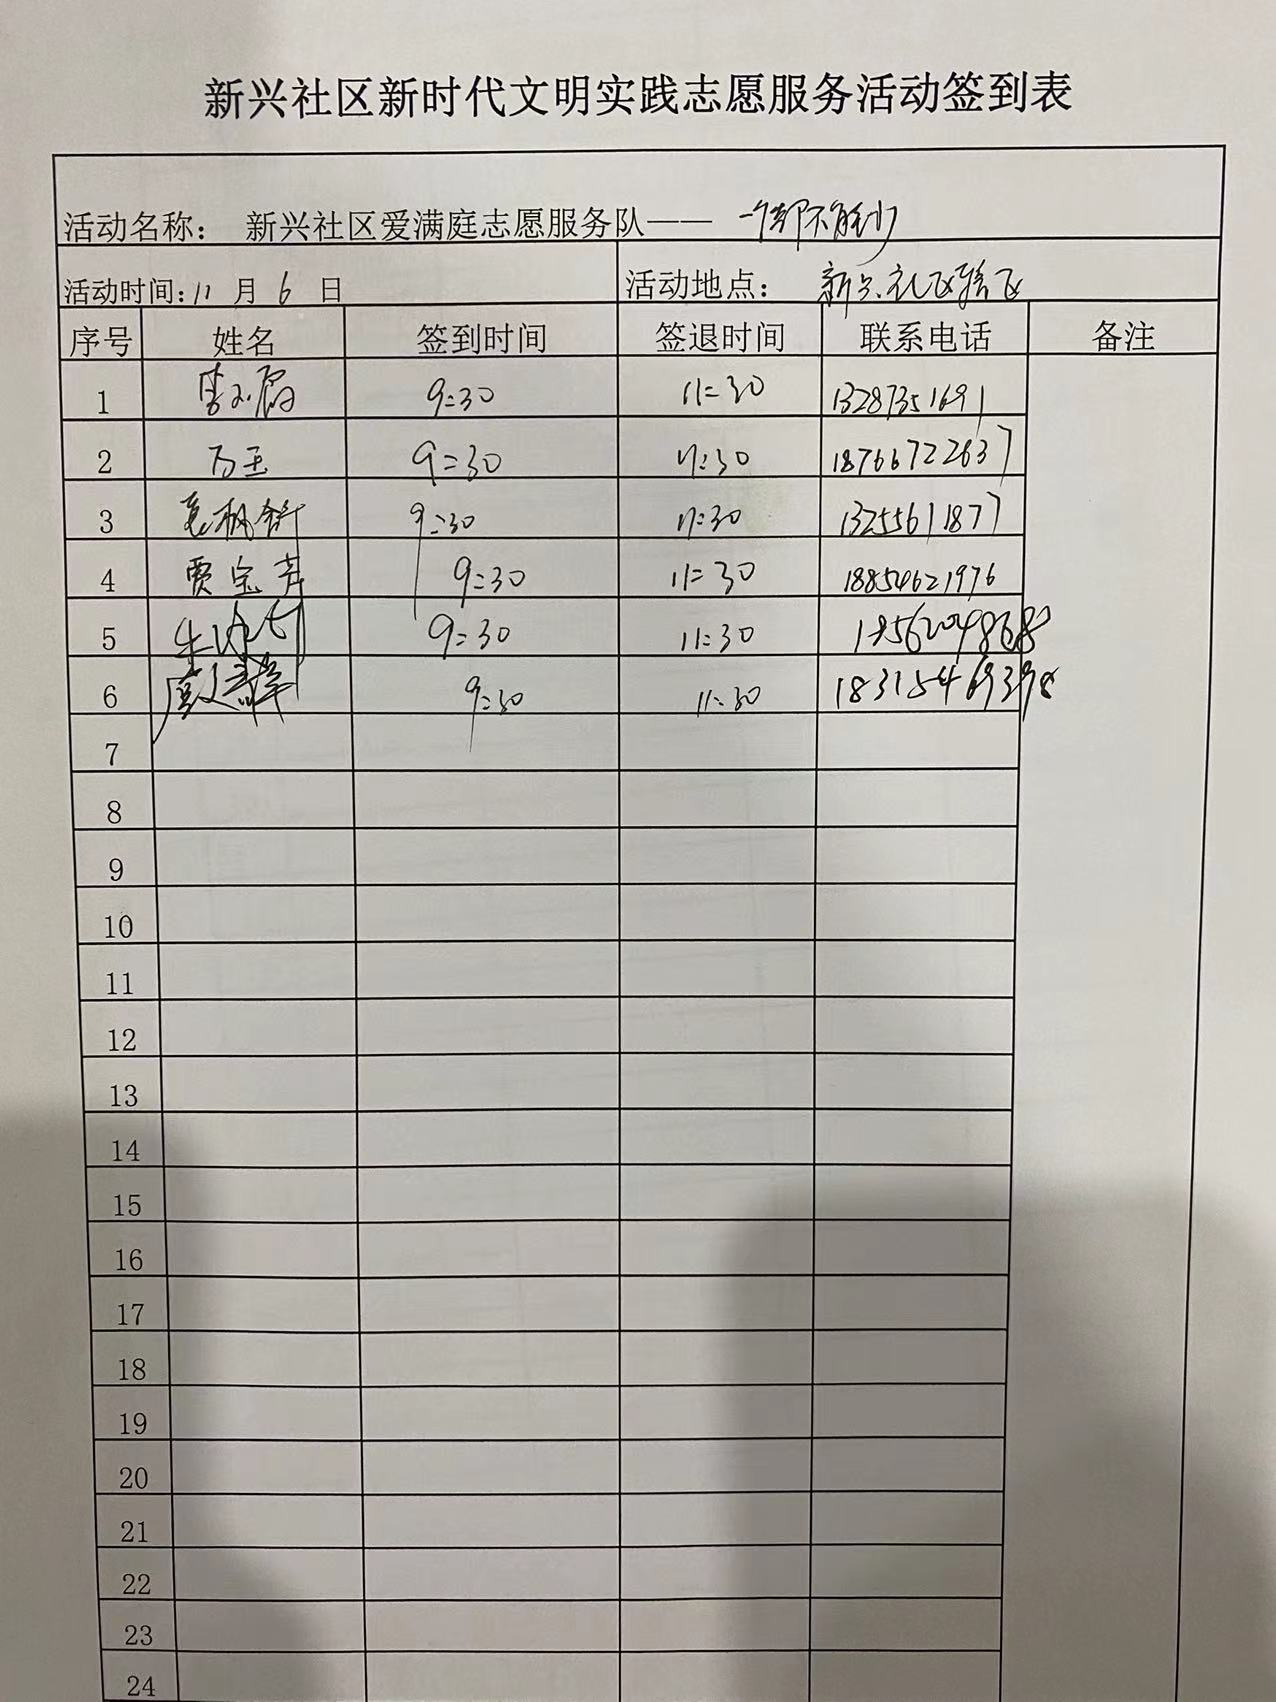 新兴社区新时代文明实践志愿服务活动签到表
活动名称： 新兴社区爱满庭志愿服务队—— 一个都不能少
活动时间：11 月 6 日 活动地点： 新兴社区辖区
序号 姓名 签到时间 签退时间 联系电话 备注
1 9:30 11:30 13287351691
2 万玉 9:30 11:30 18766722637
3 9:30 11:30 13255611877
4 贾宝芹 9:30 11:30 18854621976
5 9:30 11:30
6 9:30 11:30 18315469398
7
8
9
10
11
12
13
14
15
16
17
18
19
20
21
22
23
24